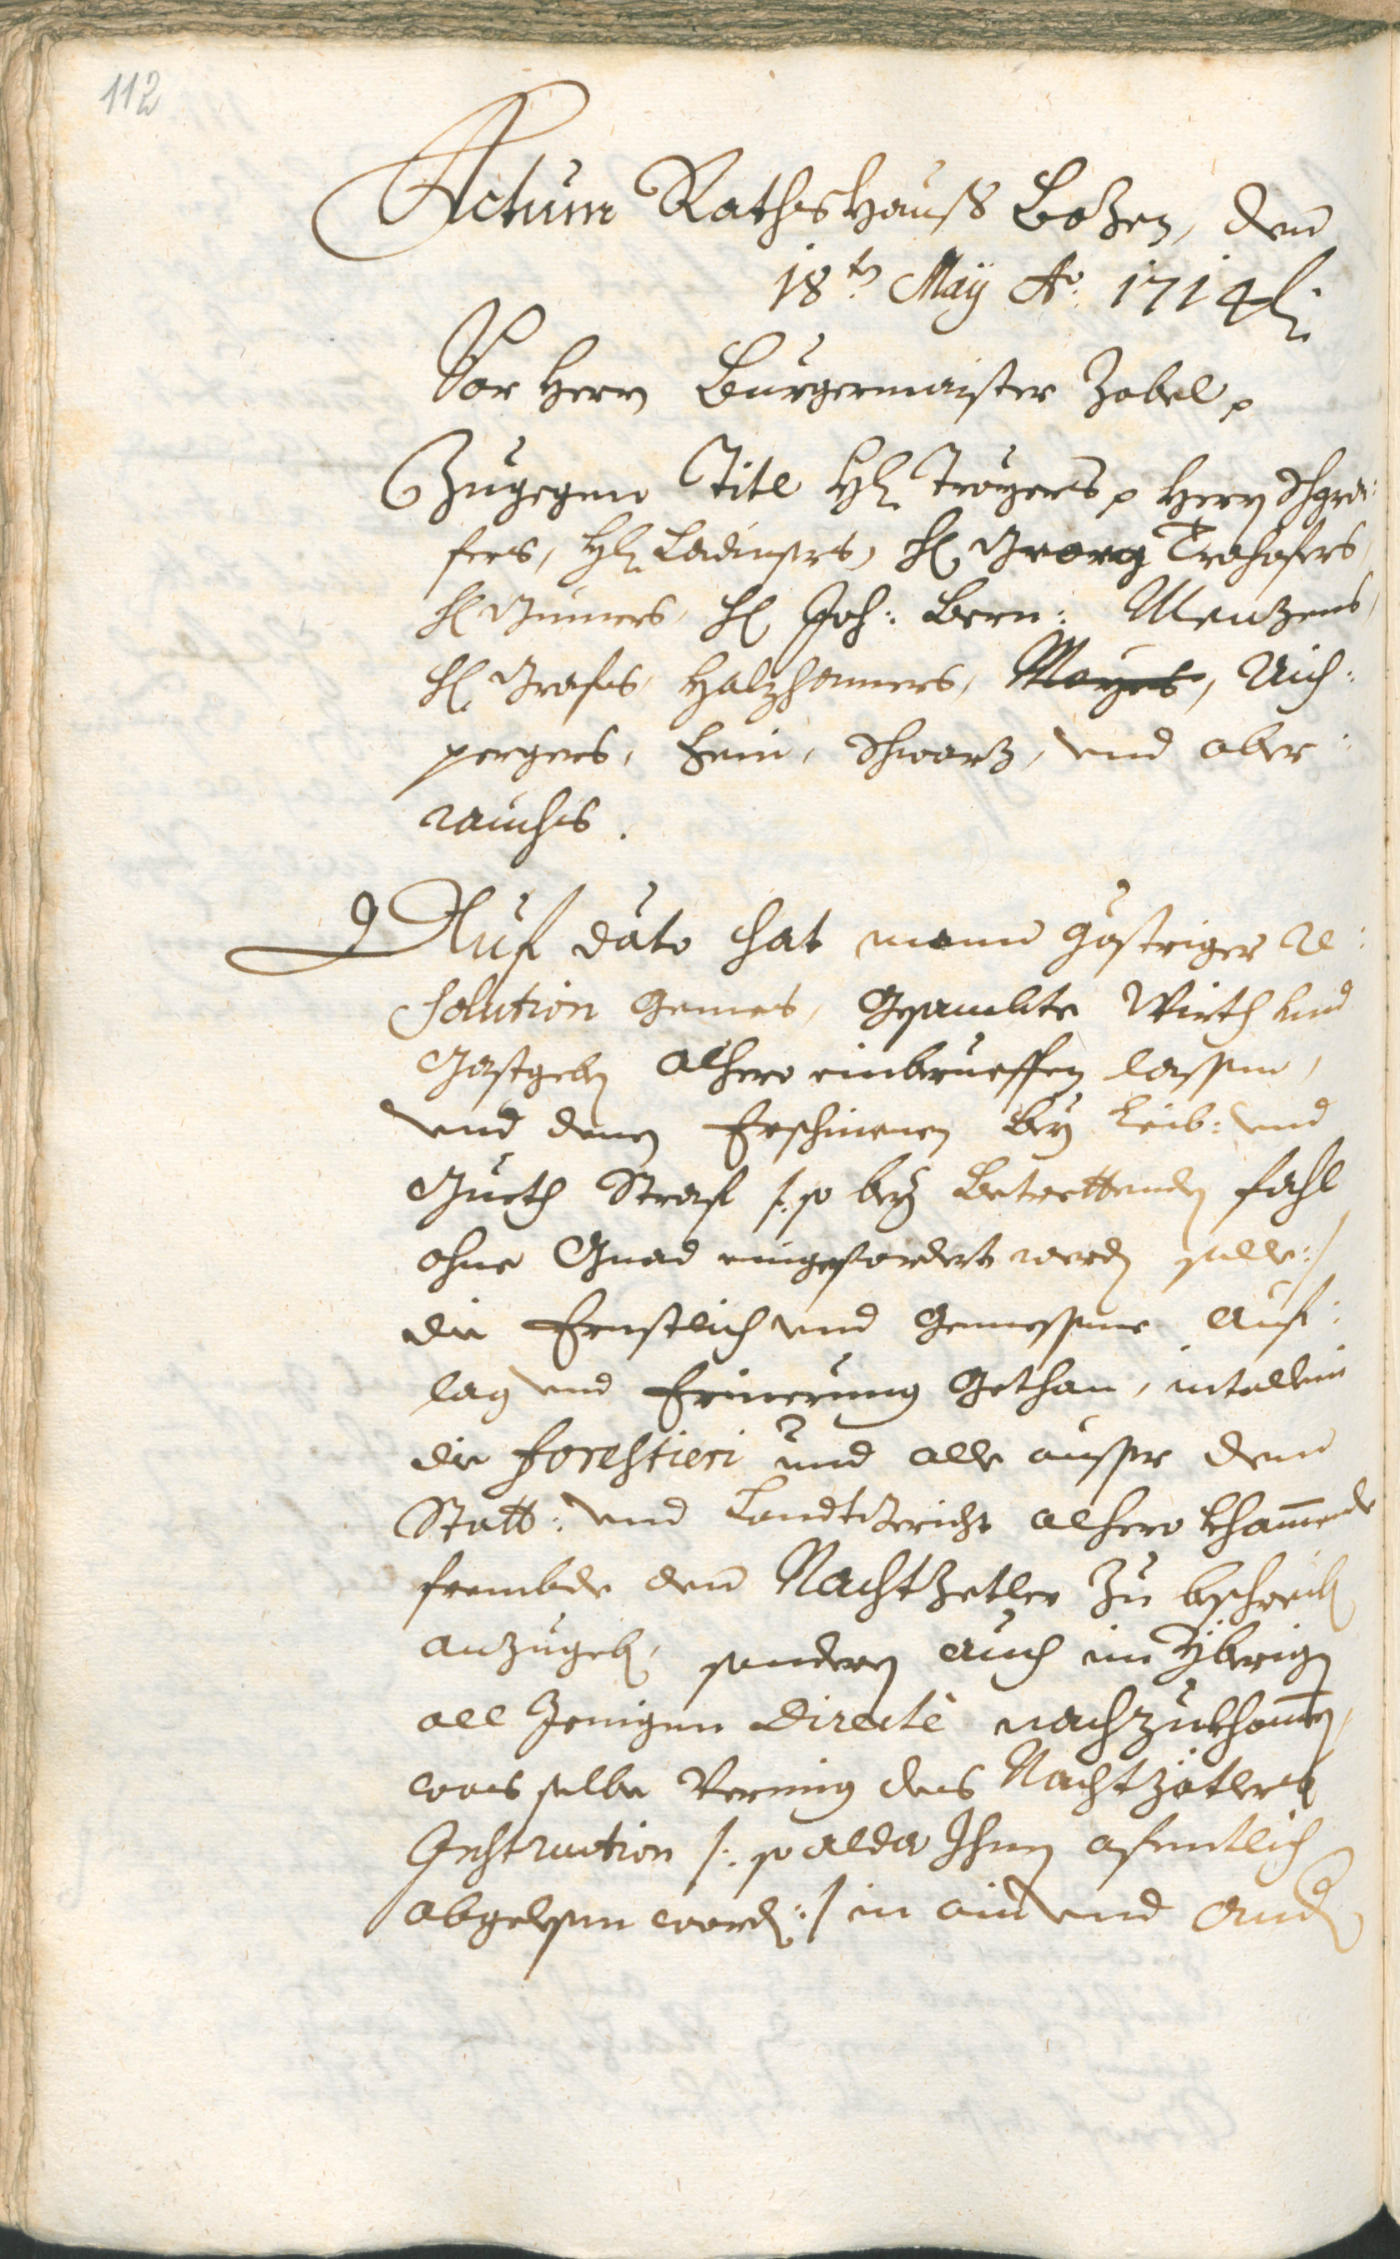 112
Actum Rathshauß Bozen, den
18t. Maÿ Ao. 1714
Vor Herrn Burgermaister Zobel p
Zugegen Titl H. Troyers p Herrn Schgra:
fers, H. Ladinsers, H. Georg Trohofers
H. Gumers, H. Joh: Bern: Menzens,
H. Grafs, Holzhamers, Mayrs, Aich:
pergers, Hein, Schwarz, und ober:
rauchs.
Auf dato hat mann gestriger Re:
solution Gemes, Gesambte Wirth und
Gastgeben alhero einberueffen lassen,
und denen Erschinenen bey Leib: und
Gueth Straf /: so bey Betrettenden fahl
ohne Gnad eingefordert werden solle :/
die Ernstlich und Gemessene Auf:
lag und Erinerung Gethan, nit allein
die forestieri und alle ausser dem
Statt: und Landtgericht alhero khommende
frembde dem Nachtzetler zu beschreiben
anzugeben, sondern auch im Yberigen
all Jenigen Directè nachzukhommen,
was selbe Vermög des Nachtzötlers
Instruction /: so alda Ihnen ofentlich
abgelesen worden :/ in ain und Anderen